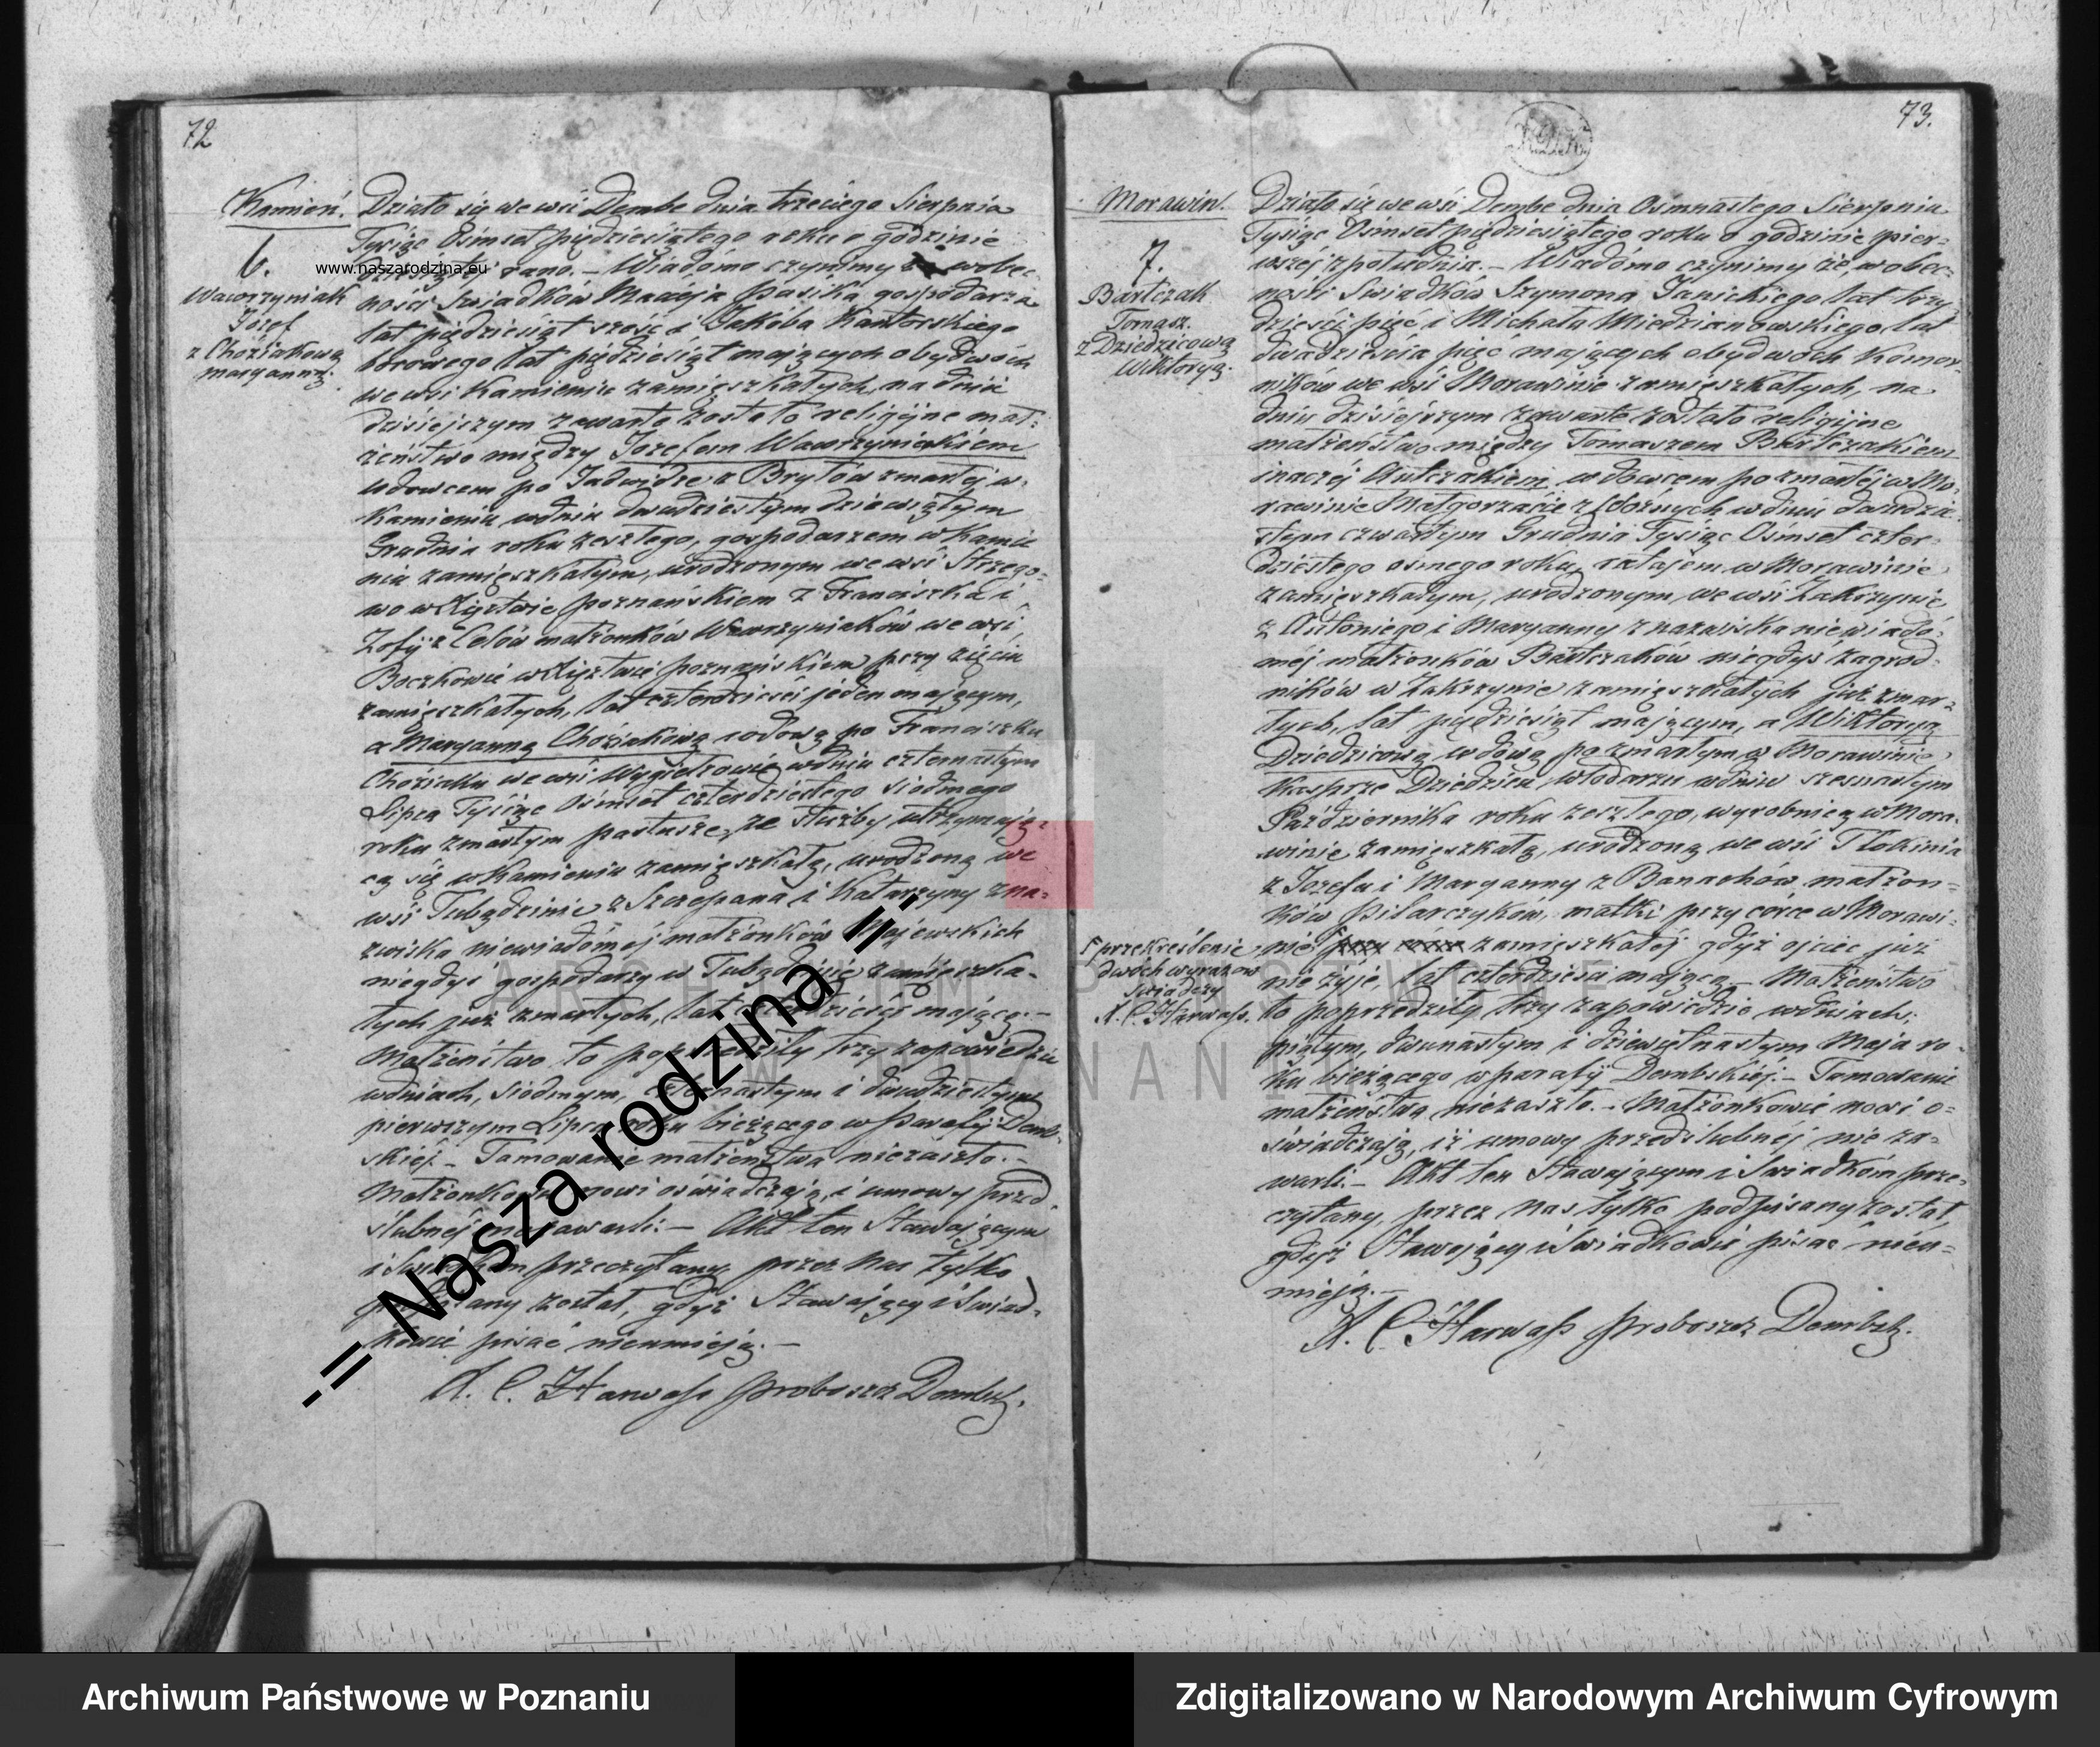 72
Kamień.
6.
Wawrzyniak
Józef
z Choziakową
Maryanną.
Działo się we wsi Dembe dnia trzeciego Sierpnia
Tysiąc Ośmset piędziesiątego roku o godzinie
rano. – Wiadomo czynimy wobec-
ności Świadków Macieja Pasika gospodarza
lat pięćdziesiąt sześć i Jakóba Kantorskiego
borowego lat pięćdziesiąt mających obydwóch
we wsi Kamieniu zamięszkałych, na dniu
dzisiejszym zawarte zostało religijne mał-
żeństwo między Jozefem Wawrzyniakiem
wdowcem po Jadwidze z Brylów zmarłej w
Kamieniu wdniu dwudziestym dziewiątym
Grudnia roku zeszłego, gospodarzem w Kamie
niu zamięszkałym, urodzonym we wsi Strzego-
wo w Xięstwie poznańskiem z Franciszka i
Zofij z Celów małżonków Wawrzyniaków we wsi
Boczkowie w Xięstwie poznańskiem przy zięciu
zamięszkałych, lat czterdzieści jeden mającym,
a Maryanną Choziakową wdową po Franciszku
Choziaku we wsi wdniu czternastym
Lipca Tysiąc Ośmset czterdziestego siodmego
roku zmarłym pastusze, ze służby utrzymują-
cą się w Kamieniu zamięszkałą, urodzoną we
wsi Tubądzinie z Szczepana i Katarzyny zna-
zwiska niewiadómej małżonków Majewskich
niegdys gospodarzy w Tubądzinie zamięszka-
łych już zmarłych, lat czterdzieści mającą. –
Małżeństwo to poprzedziły trzy zapowiedzie
wdniach, siodmym, czternastym i dwudziestym
pierwszym Lipca roku bieżącego w parafij Demb-
skiéj. – Tamowanie małżeństwa niezaszło. –
Małżonkowie nowi oświadczają, i umowy przed-
ślubnéj niezawarli. – Akt ten Stawającym
i Świadkom przeczytany przez Nas tylko
podpisany został, gdyż Stawający i Świad-
kowie pisać nieumieją. –
X. C. Harwass Proboszcz Dembsk.
73.
Morawin.
7.
Bartczak
Tomasz.
z Dziedzicową
Wiktoryą.
Działo się we wsi Dembe dnia Ośmnastego Sierpnia
Tysiąc Ośmset pięćdziesiątego roku o godzinie pier-
wszéj z południa. – Wiadomo czynimy że, w obec-
ności Świadków Szymona Janickiego lat trzy-
dzieści pięć i Michała Miedzianowskiego lat
dwadzieścia pięć mających obydwóch Komor-
ników we wsi Morawinie zamięszkałych, na
dniu dzisiejszym zawarte zostało religijne
małżeństwo między Tomaszem Bartczakiem
inaczéj Antczakiem wdowcem po zmarłéj w Mo-
rawinie Małgorzacie z wdniu dwudzie-
stym czwartym Grudnia Tysiąc Ośmset czter-
dziestego osmego roku, ratajem w Morawinie
zamięszkałym, urodzonym we wsi Zakrzynie
z Antoniego i Maryanny z nazwiska niewiadó-
méj małżonków Bartczaków niegdys zagrod-
ników w Zakrzynie zamięszkałych już zmar-
łych, lat pięćdziesiąt mającym, a Wiktoryą
Dziedzicową wdową po zmarłym w Morawinie
Kasprze Dziedzicu włodarzu wdniu szesnastym
Październiku roku zeszłego, wyrobnicą w Mora-
winie zamięszkałą, urodzoną we wsi Tłokinia
z Jozefa i Maryanny z Banachów małżon-
ków Pilarczyków, matki przy córce w Morawi-
nie przy córce zamięszkałéj gdyż ojciec już
nie żyje, lat czterdzieści mającą. – Małżeństwo
to poprzedziły trzy zapowiedzie wdniach,
piątym, dwunastym i dziewiętnastym Maja ro-
ku bieżącego w parafij Dembskiéj. – Tamowanie
małżeństwa niezaszło. – Małżonkowie nowi o-
świadczają, iż umowy przedślubnéj nie za-
warli. – Akt ten Stawającym i Świadkóm prze-
czytany, przez Nas tylko podpisany został
gdyż Stawający i Świadkowie pisać nieu-
mieją. –
X. C. Harwass Proboszcz Dembsk.
przekreślenie
dwóch wyrazów
świadczy
X. C. Harwass.
www.naszarodzina.eu
-=Nasza rodzina=-
ARCHIWUM PAŃSTWOWE
W POZNANIU
Archiwum Państwowe w Poznaniu
Zdigitalizowano w Narodowym Archiwum Cyfrowym